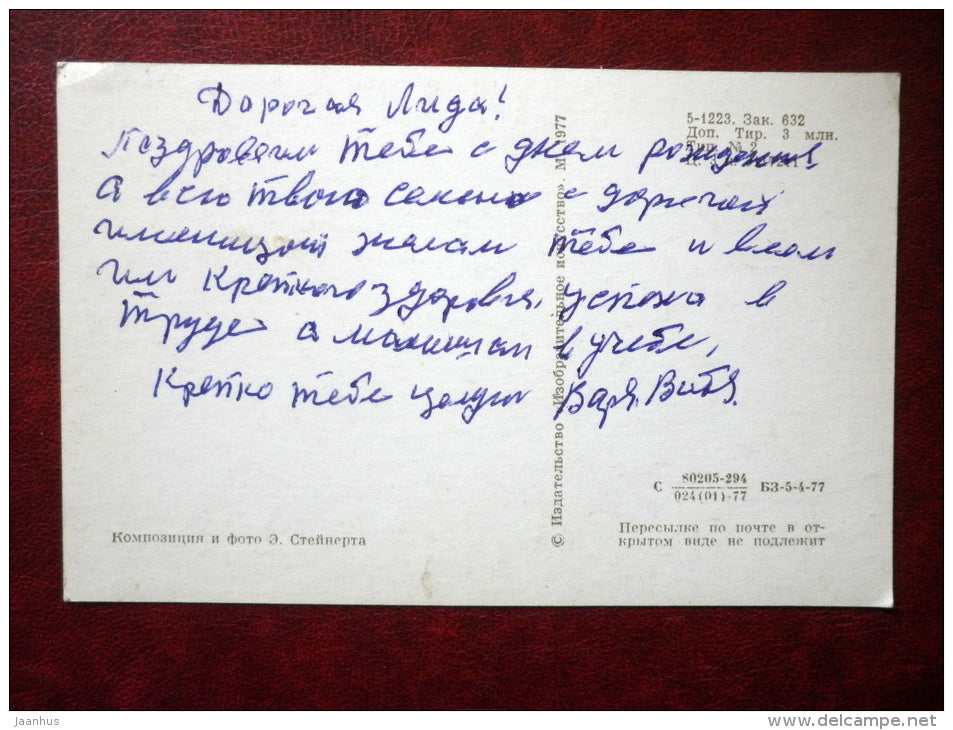 Дорогая Лида!
Поздровяем тебе с днем рождения
а всю твою семью с дорогой
именицой желам тебе и всем
им крепкого здоровья, успеха в
труде а малишам в учебе,
Крепко тебе целуем Варя. Витя.
5-1223. Зак. 632
Доп. Тир. 3 млн.
Тип. № 2
© Издательство «Изобразительное искусство». М 1977
С 80205-294
024(01)-77 БЗ-5-4-77
Пересылке по почте в от-
крытом виде не подлежит
Композиция и фото Э. Стейнерта
jaanhus
www.delcampe.net